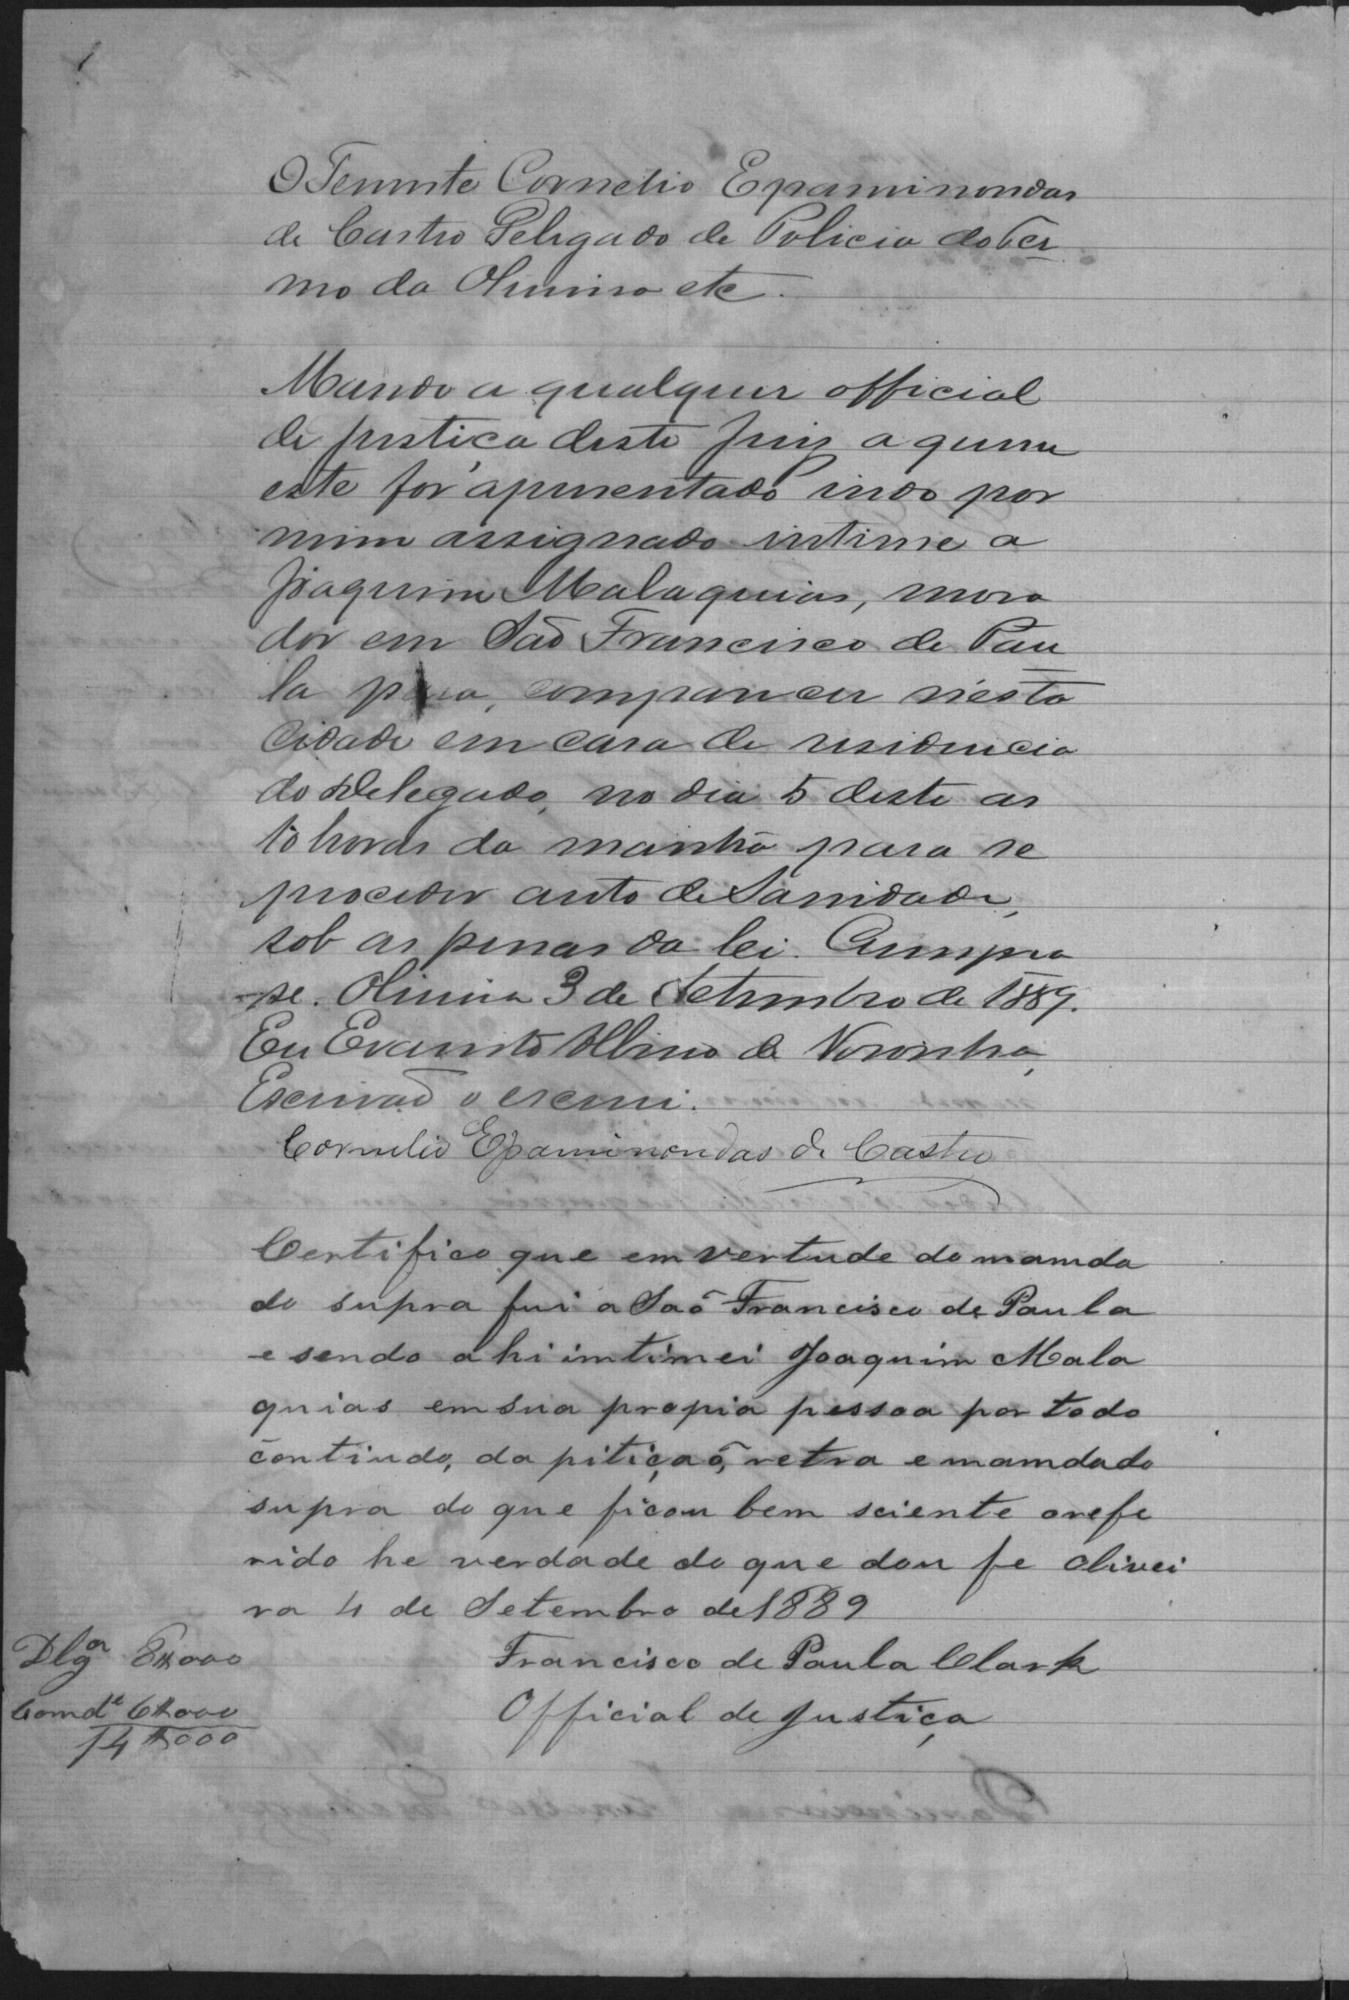 O Tenente Cornelio Epaminondas
de Castro Delegado de Policia do Ter
mo da Oliveira etc.
Mando a qualquer official
de justica deste Juiz a quem
este for apresentado indo por
mim assignado intime a
Joaquim Malaquias, mora
dor em São Francisco de Pau
la para, comparecer n'esta
Cidade em casa de residencia
do Delegado, no dia 5 deste as
10 horas da manhã para se
proceder auto de Sanidade,
sob as penas da lei. Cumpra
se. Oliveira 3 de Setembro de 1889.
Eu Evaristo Albino de Noronha,
Escrivão o escrevi.
Cornelio Epaminondas de Castro
Certifico que em vertude do mamda
do supra fui a Saõ Francisco de Paula
e sendo ahi imtimei Joaquim Mala
quias em sua propia pessoa por todo
contiudo, da pitiçaõ, retra e mamdado
supra do que ficou bem sciente orefe
rido he verdade do que dou fe Olivei
ra 4 de Setembro de 1889
Francisco de Paula Clark
Official de Justiça
Dlgª 8$000
Comdᵉ 6$000
14$000